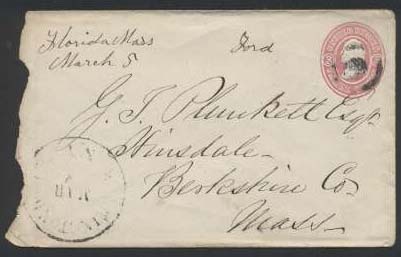 Florida Mass Ford
March 5
G. T. Plunkett Esqr
Hinsdale
Berkshire Co
Mass